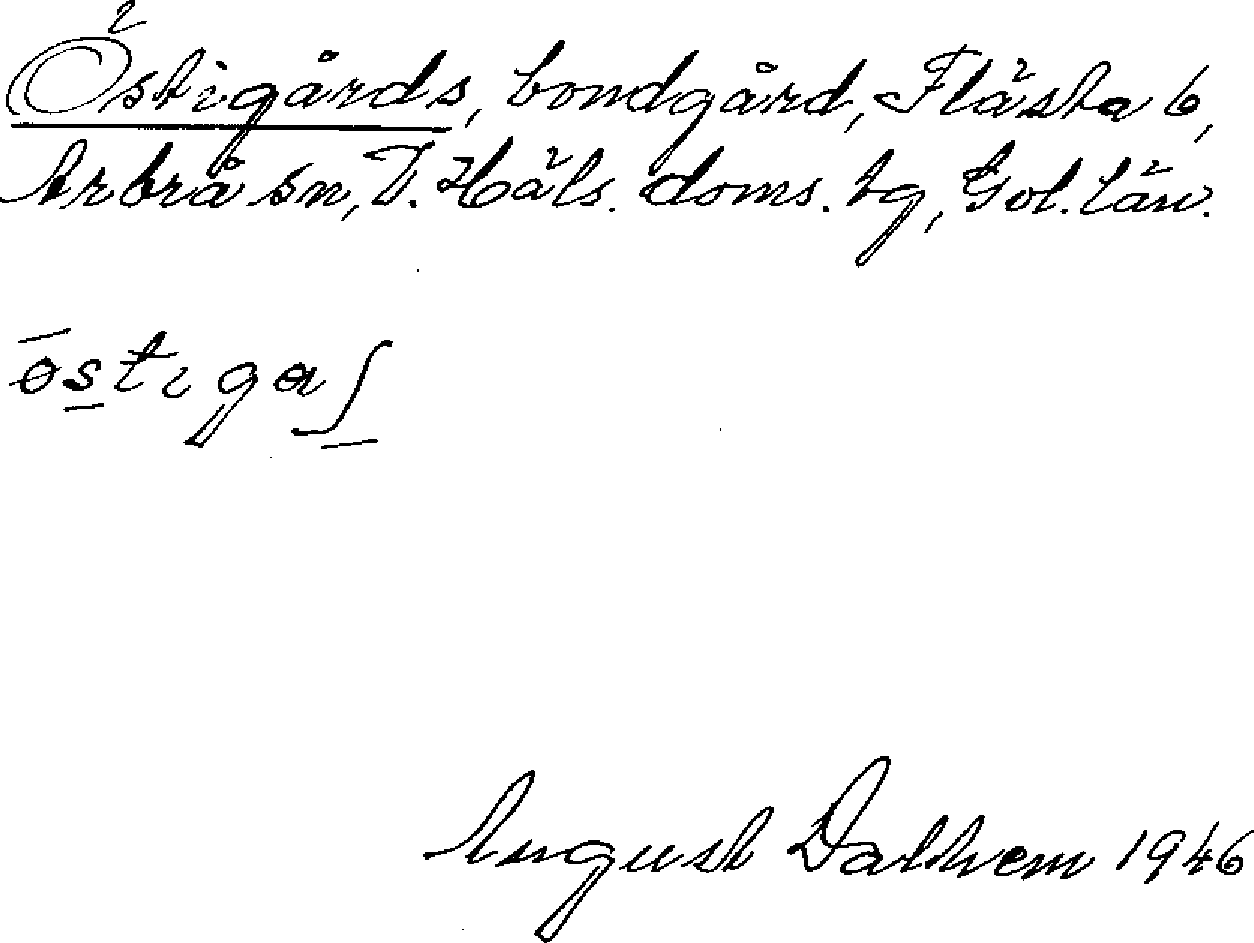 Östigårds, bondgård, Flästa 6,
Arbrå sn, V. Häls. doms. tg, Gvl. län.
ōs̲tiga ʃ̲
August Dalhem 1946